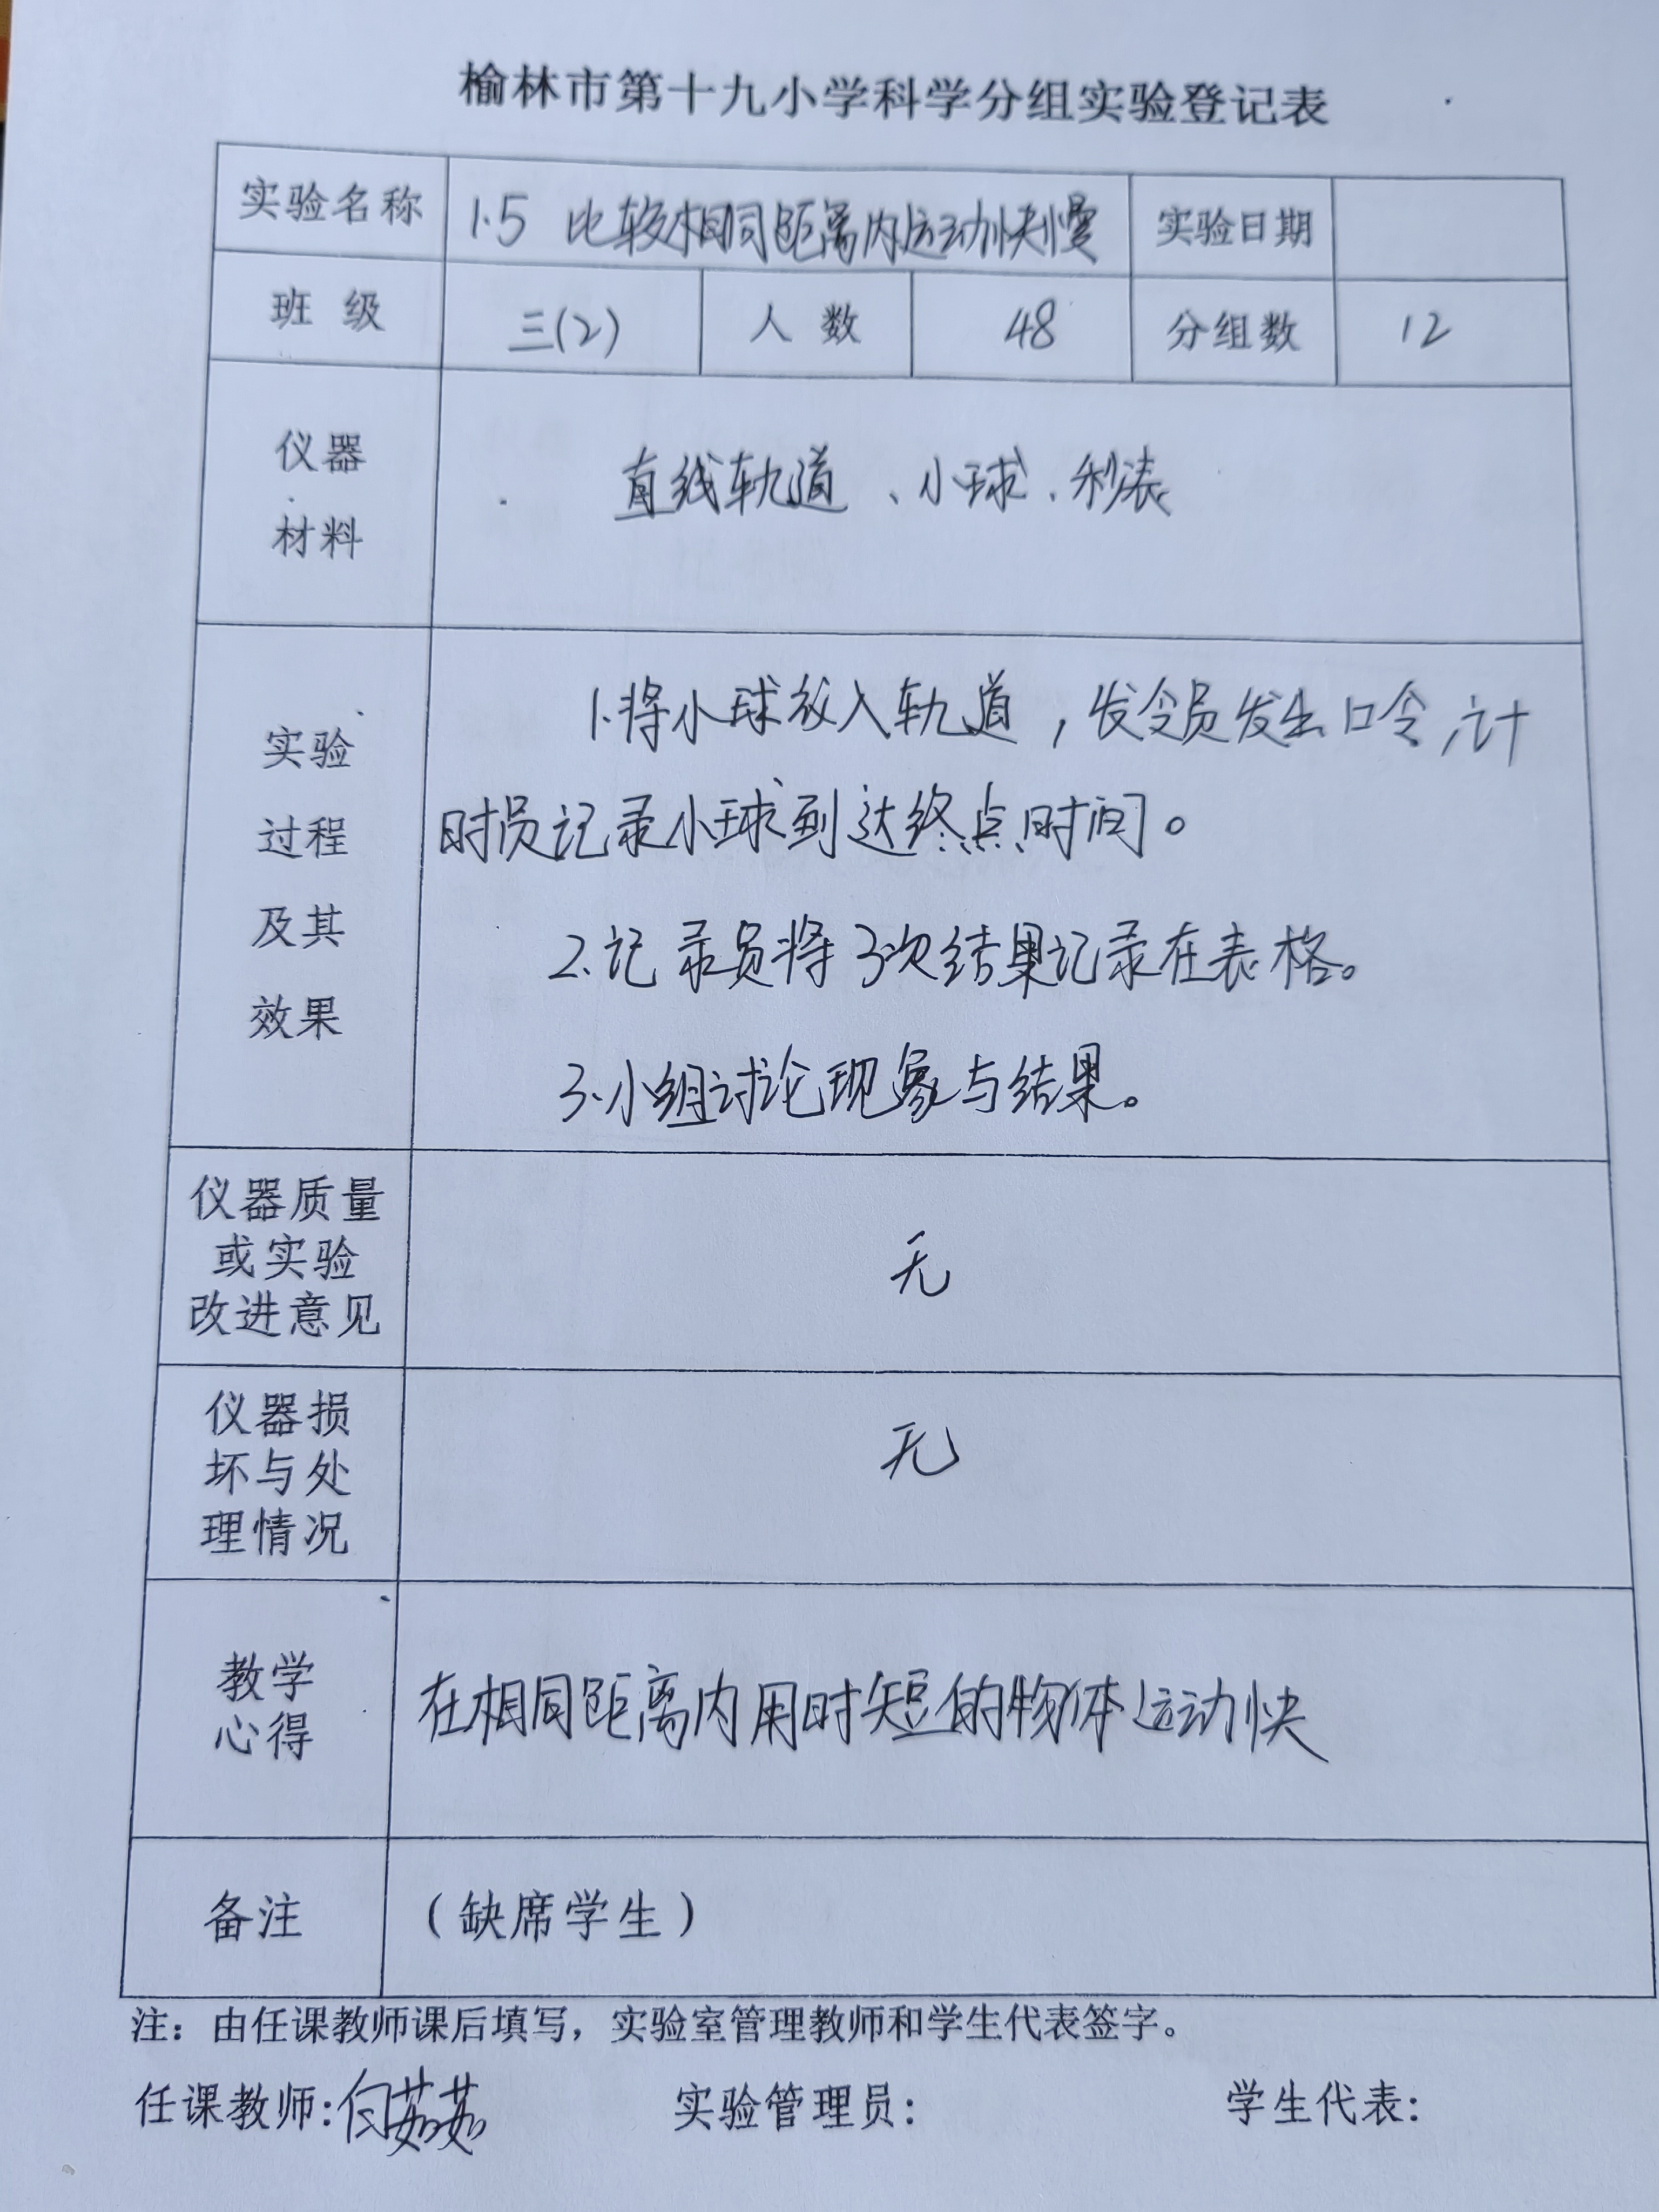 榆林市第十九小学科学分组实验登记表
实验名称 1.5 比较相同距离内运动快慢 实验日期
班 级 三(2) 人 数 48 分组数 12
仪器
材料
直线轨道、小球、秒表
实验
过程
及其
效果
1.将小球放入轨道,发令员发出口令,计
时员记录小球到达终点时间。
2.记录员将3次结果记录在表格。
3.小组讨论现象与结果。
仪器质量
或实验
改进意见
无
仪器损
坏与处
理情况
无
教学
心得
在相同距离内用时短的物体运动快
备注 (缺席学生)
注:由任课教师课后填写,实验室管理教师和学生代表签字。
任课教师: 实验管理员: 学生代表: